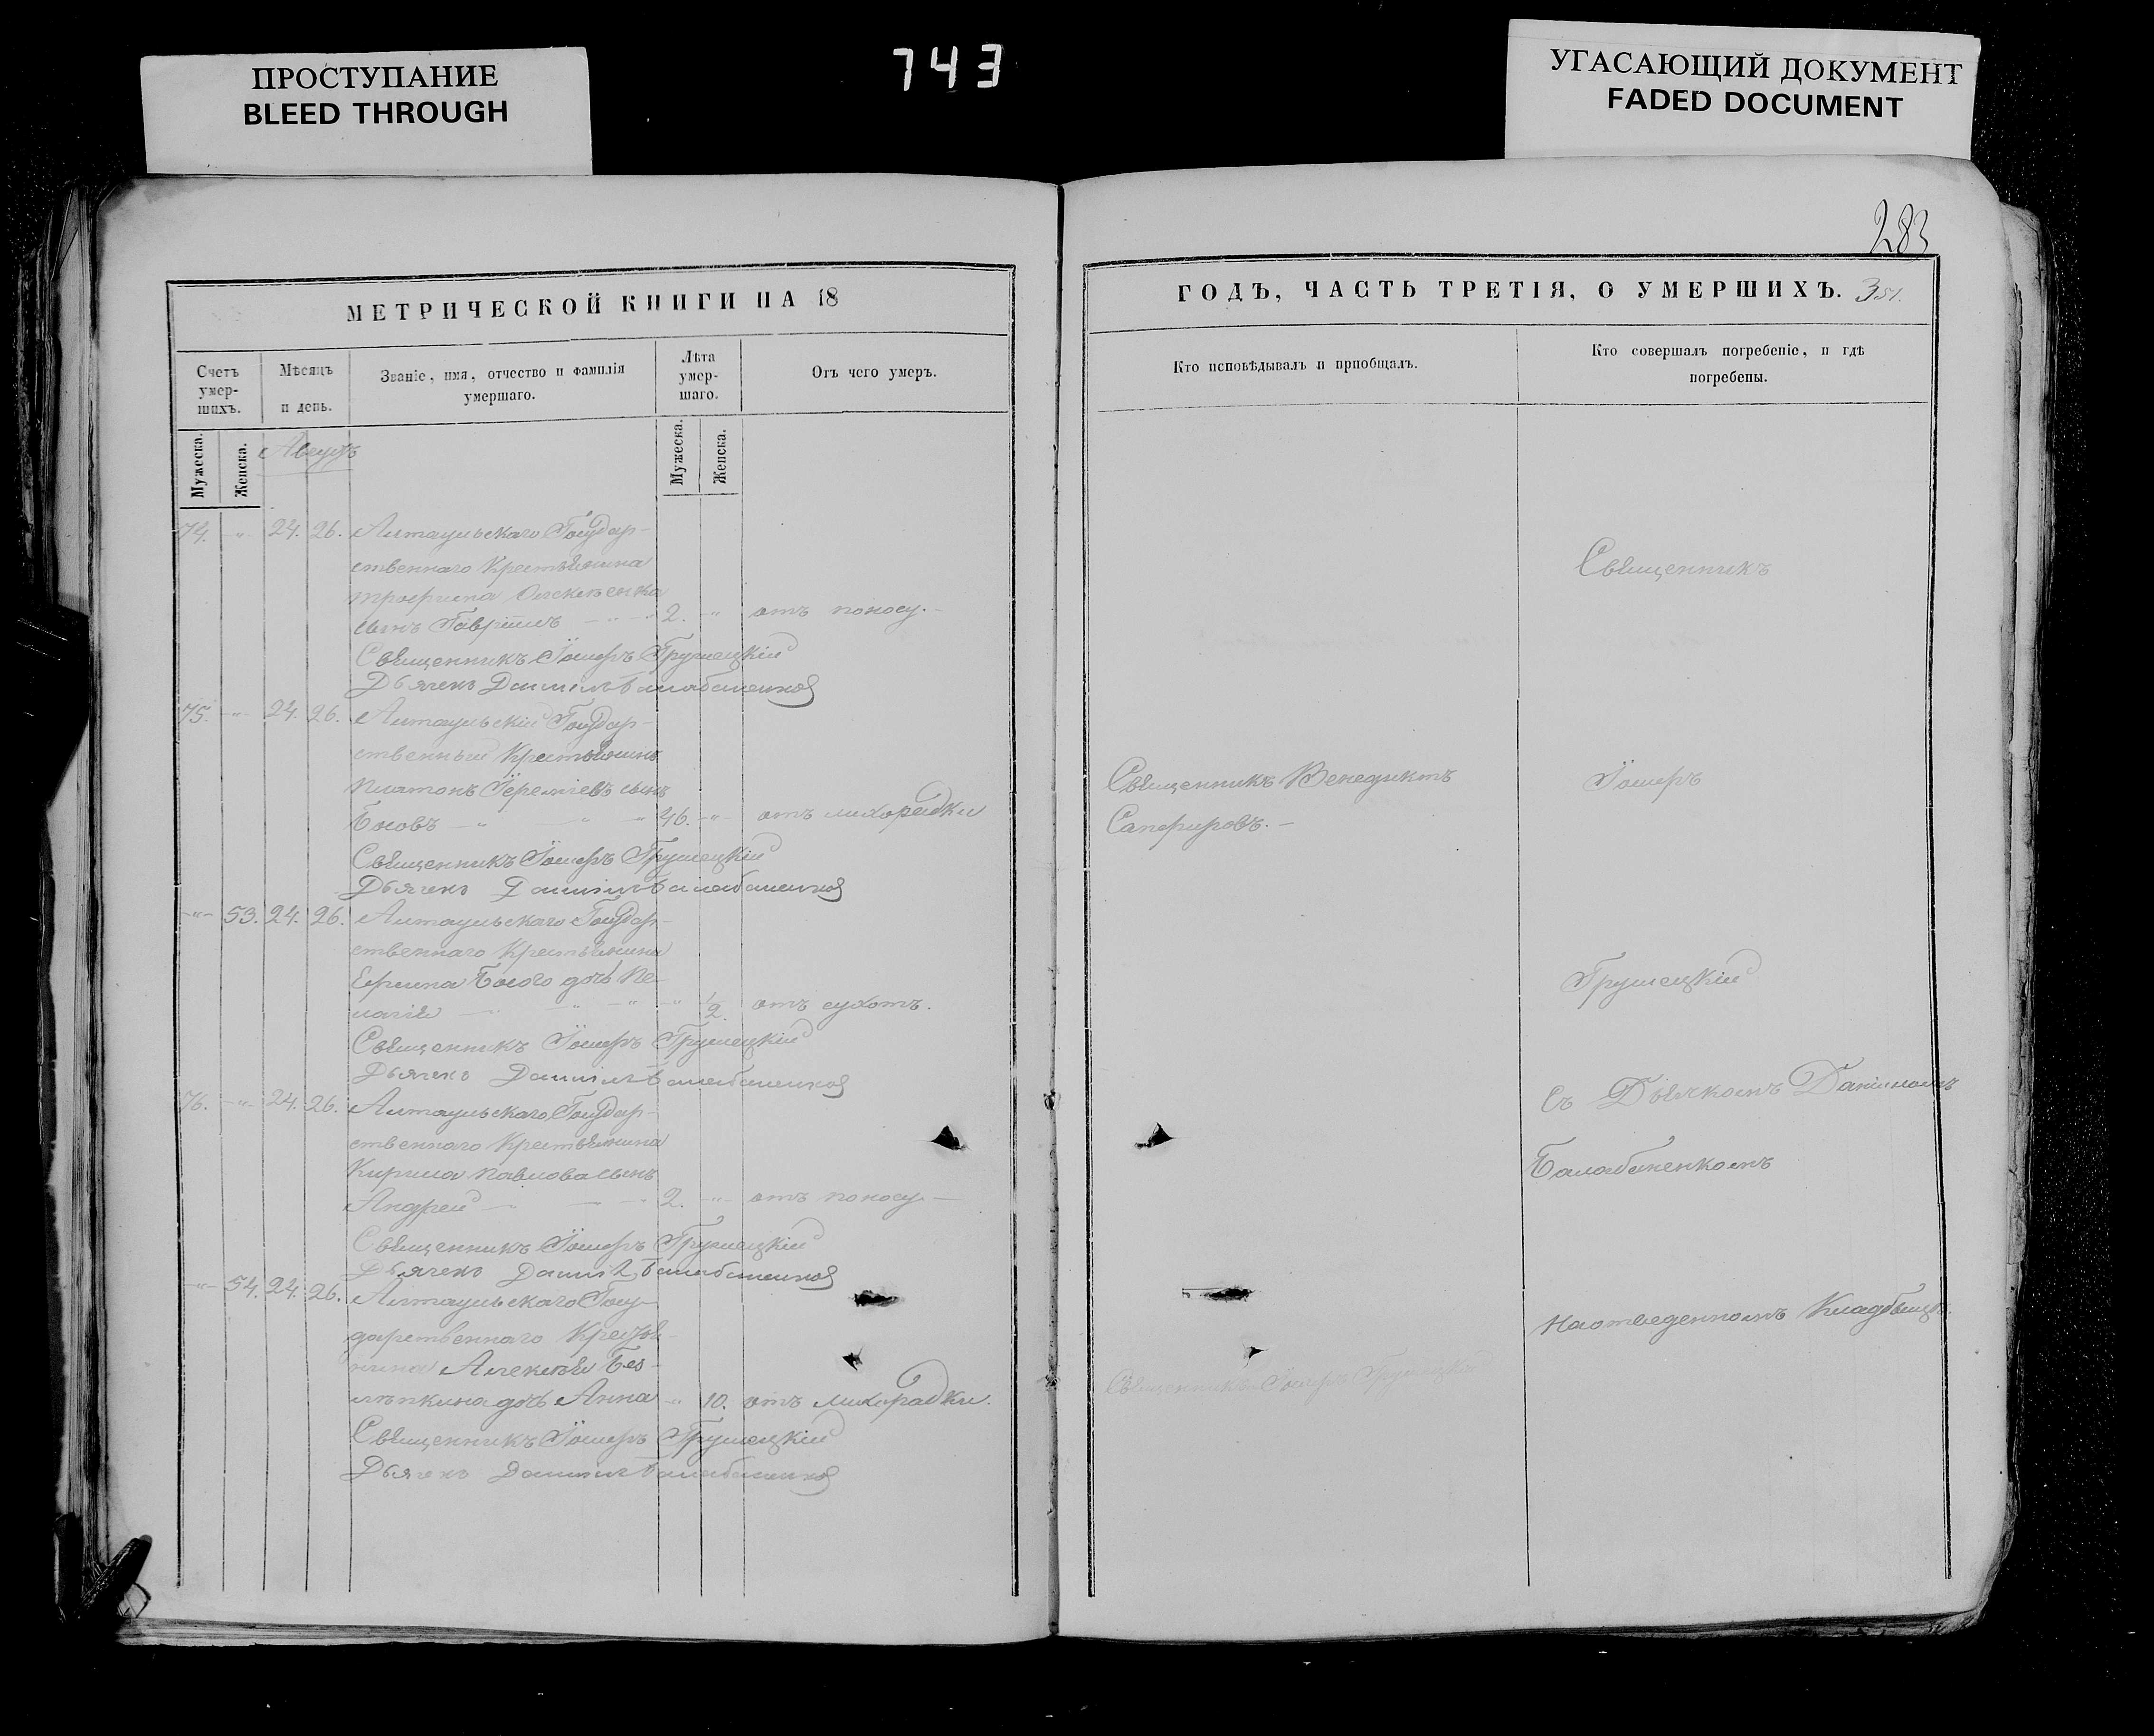 ПРОСТУПАНИЕ
BLEED THROUGH
743
УГАСАЮЩИЙ ДОКУМЕНТ
FADED DOCUMENT
283
МЕТРИЧЕСКОЙ КНИГИ НА 18
Счетъ умер-шихъ.
Мѣсяцъ и день.
Званіе, имя, отчество и фамилія умершаго.
Лѣта умер-шаго.
Отъ чего умеръ.
Мужеска.
Женска.
Августъ
Мужеска.
Женска.
74. " 24. 26. Аитаульскаго Государ-
ственнаго Крестьянина
Трофима
сынъ Гавріилъ 2. " отъ поносу.
Священникъ Іосифъ Грушецкій
Дьячекъ Даниилъ Балабаненко
75. " 24. 26. Аитаульскій Государ-
ственный Крестьянинъ
Платонъ Іереміевъ сынъ
Босовъ 46. " отъ лихорадки
Священникъ Іосифъ Грушецкій
Дьячекъ Даниилъ Балабаненко
" 53. 24. 26. Аитаульскаго Государ-
ственнаго Крестьянина
Ефима Босого дочь Пе-
лагія " 1/2. отъ сухотъ.
Священникъ Іосифъ Грушецкій
Дьячекъ Даниилъ Балабаненко
76. " 24. 26. Аитаульскаго Государ-
ственнаго Крестьянина
Кирила Павлова сынъ
Андрей 2. " отъ поносу
Священникъ Іосифъ Грушецкій
Дьячекъ Даниилъ Балабаненко
" 54. 24. 26. Аитаульскаго Госу-
дарственнаго Крестья-
нина Алексѣя
дочь Анна " 10. отъ лихорадки.
Священникъ Іосифъ Грушецкій
Дьячекъ Даниилъ Балабаненко
ГОДЪ, ЧАСТЬ ТРЕТІЯ, О УМЕРШИХЪ. 351.
Кто исповѣдывалъ и пріобщалъ.
Кто совершалъ погребеніе, и гдѣ
погребены.
Священникъ Венедиктъ
Сапфировъ.
Священникъ Іосифъ Грушецкій
Священникъ
Іосифъ
Грушецкій
съ Дьячкомъ Даніиломъ
Балабаненкомъ
На отведенномъ Кладбищѣ.